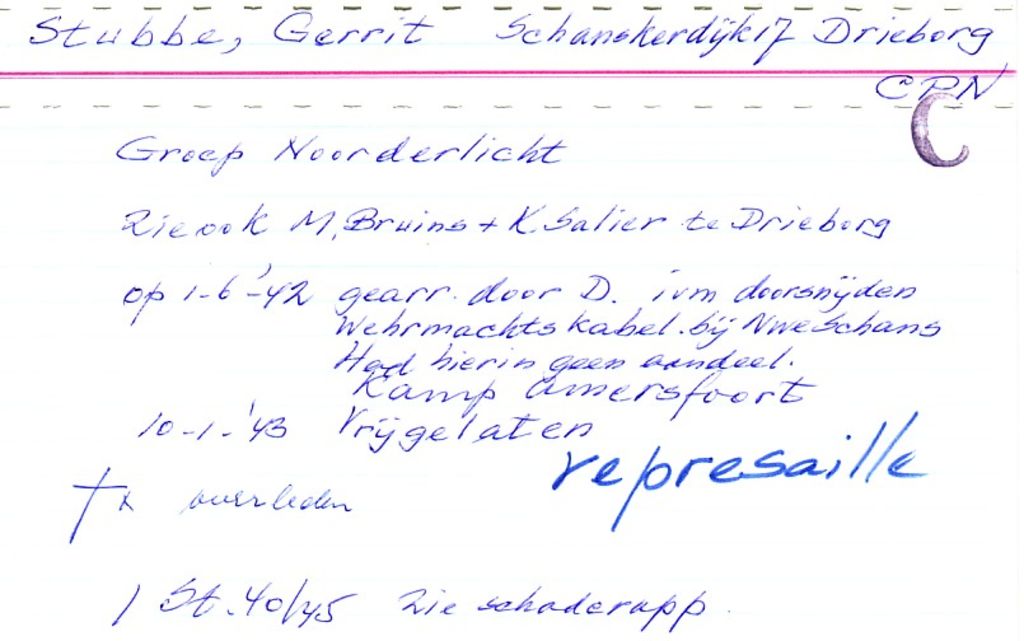 Stubbe, Gerrit Schanskerdijk 17 Drieborg
CPN
C
Groep Noorderlicht
Zie ook M. Bruins + K. Salier te Drieborg
op 1-6-'42 gearr. door D. ivm doorsnijden
Wehrmachtskabel. bij Nwe Schans
Had hierin geen aandeel.
Kamp Amersfoort
10-1-'43 Vrijgelaten
represaille
† x overleden
1 St. 40/45 Zie schaderapp.